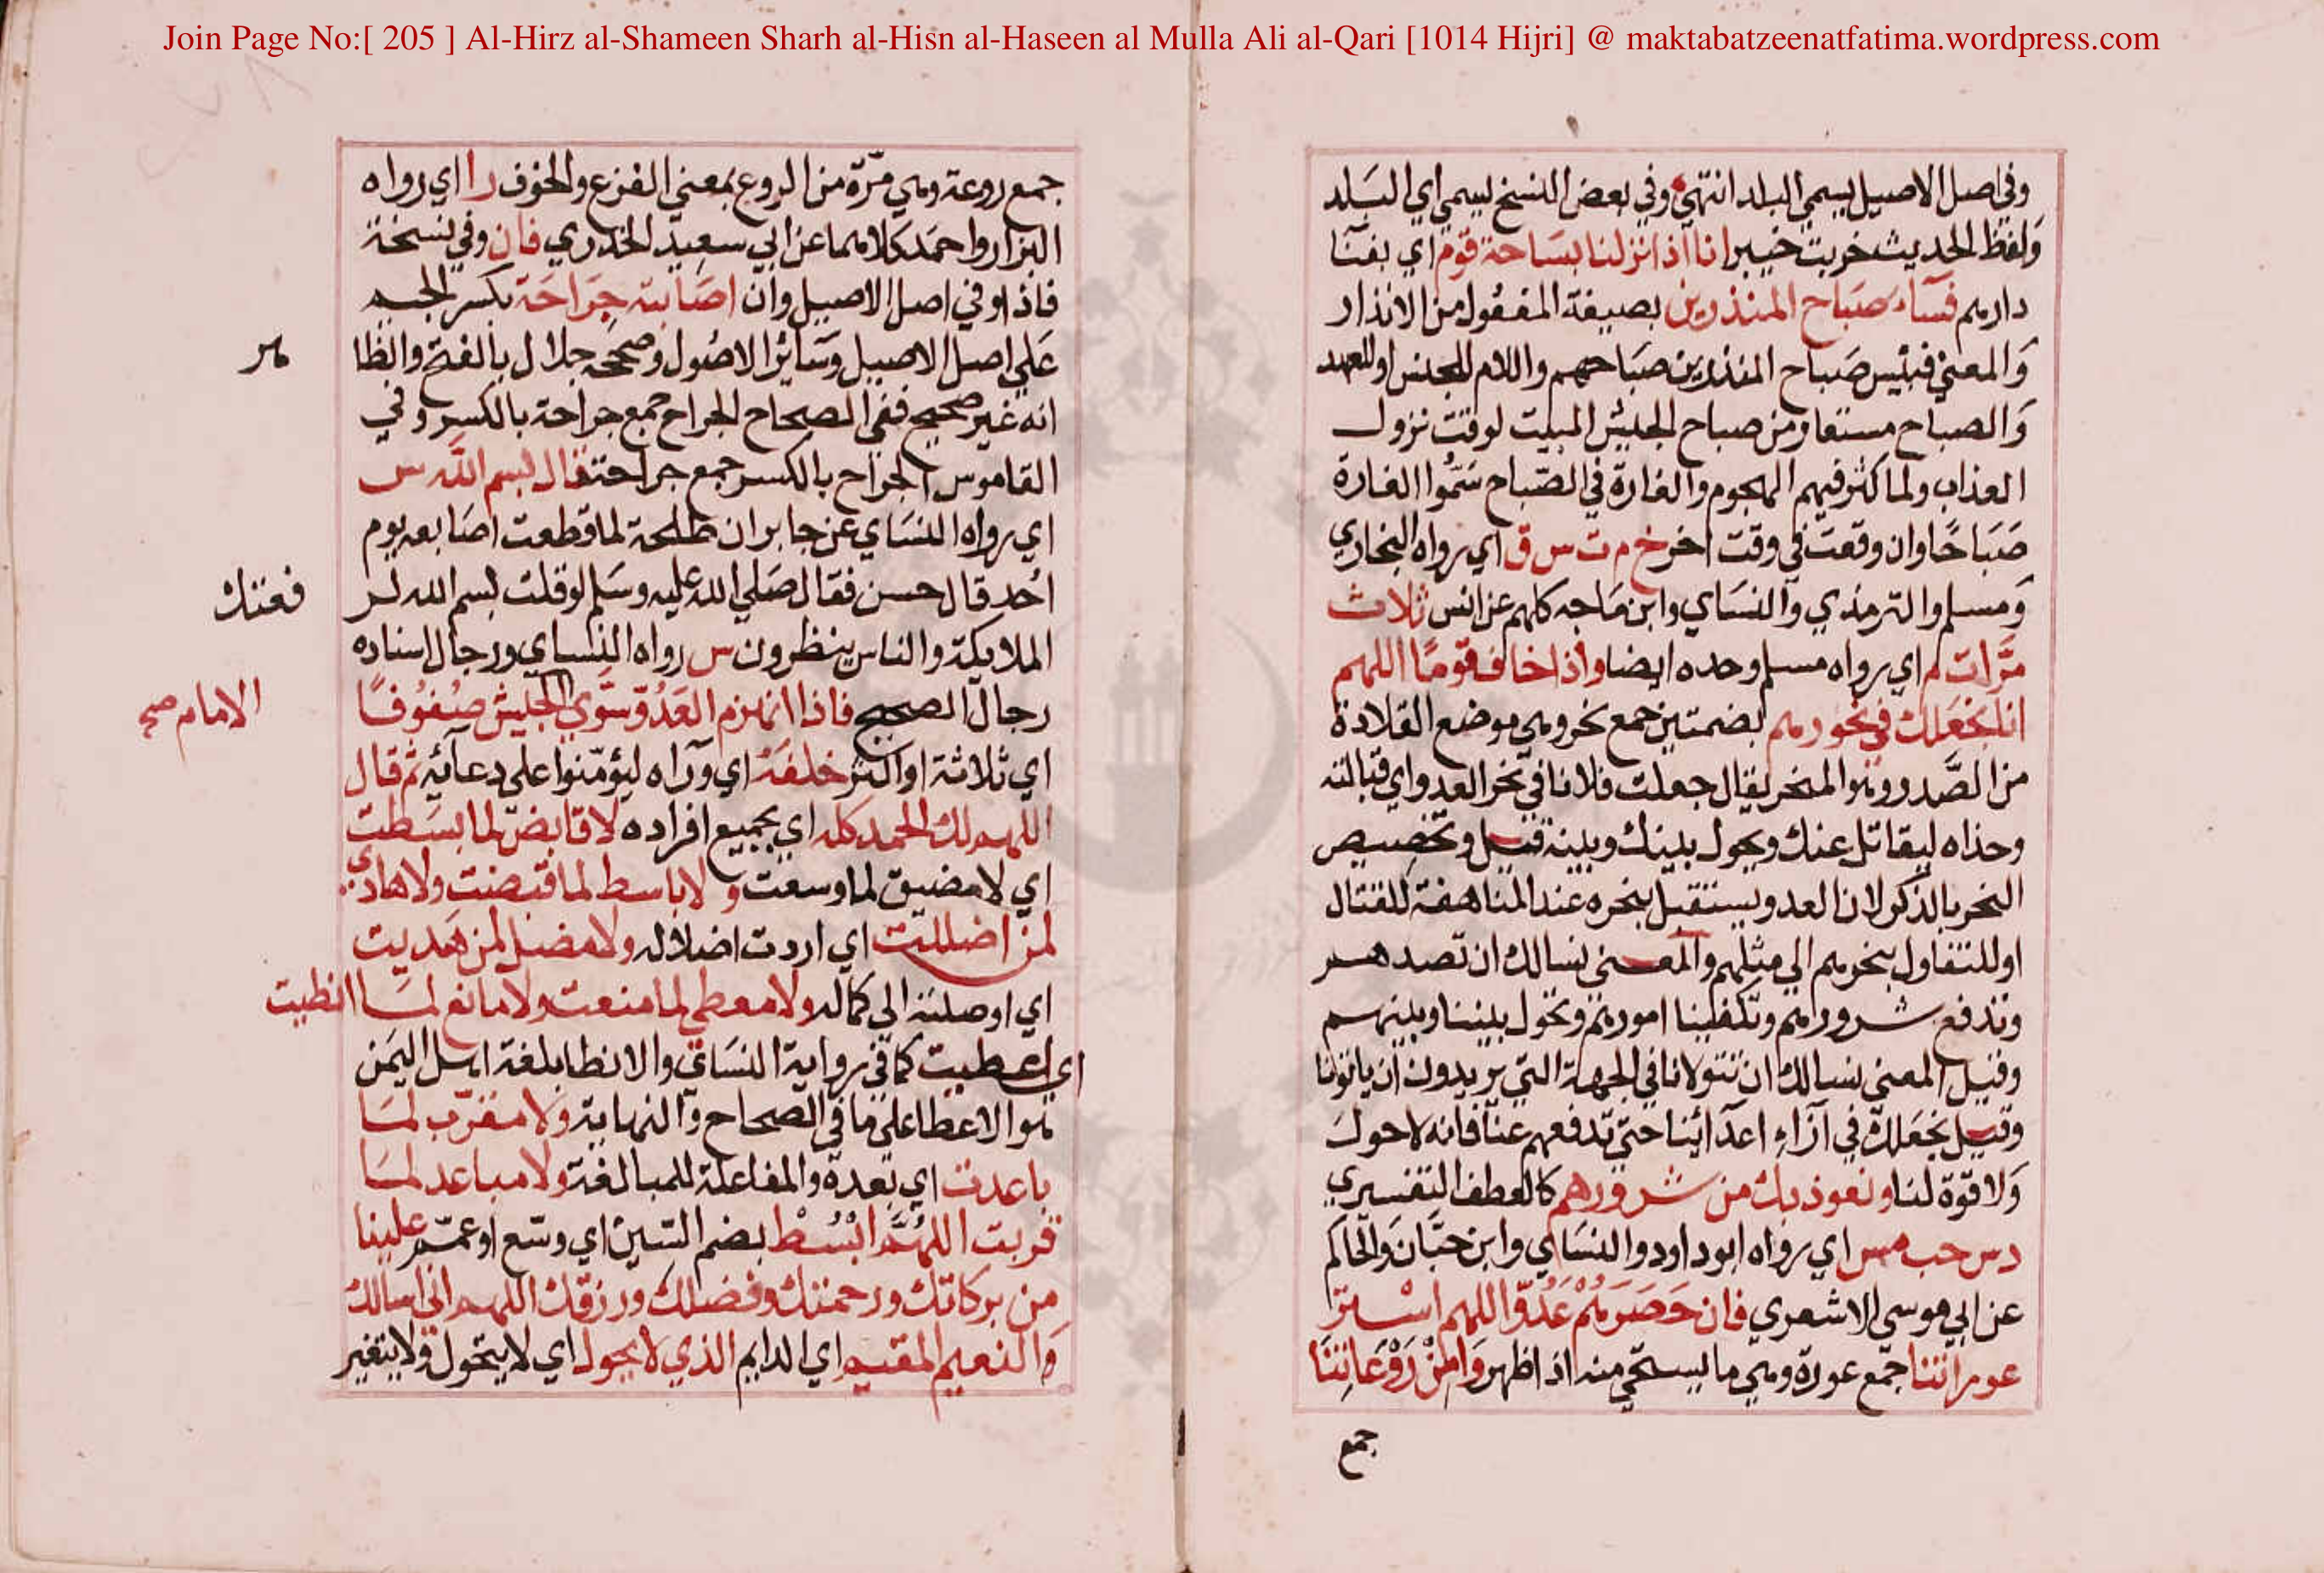 Join Page No:[ 205 ] Al-Hirz al-Shameen Sharh al-Hisn al-Haseen al Mulla Ali al-Qari [1014 Hijri] @ maktabatzeenatfatima.wordpress.com
وفي اصل الاصيل يسمي البلد انتهي وفي بعض النسخ ليسمي اي البلد
ولفظ الحديث خربت خيبر انا اذا نزلنا بساحة قوم اي بفنا
دارهم فسآء صباح المنذرين بصيغة المفعول من الانذار
والمعني فبئس صباح المنذرين صباحهم واللام للجنس او للعهد
والصباح مستعار من صباح الجيش المبيت لوقت نزول
العذاب ولما كثر فيهم الهجوم والغارة في الصباح سموا الغارة
صباحا وان وقعت في وقت اخر خ م ت س ق اي رواه البخاري
ومسلم والترمذي والنساي وابن ماجه كلهم عن انس ثلاث
مرات م اي رواه مسلم وحده ايضا واذا خاف قوما اللهم
انا نجعلك في نحورهم بضمتين جمع نحر وهي موضع القلادة
من الصدر وهو المنحر يقال جعلت فلانا في نحر العدو اي قبالته
وحذاه ليقاتل عنك ويحول بينك وبينه قيل وتخصيص
النحر بالذكر لان العدو يستقبل بنحره عند المناهضة للقتال
او للتفاول بنحرهم الي مثلهم والمعني نسالك ان تصدهم
وتدفع شرورهم وتكفينا امورهم وتحول بيننا وبينهم
وقيل المعني نسالك ان تتولانا في الجهة التي يريدون ان ياتونا
وقيل نجعلك في ازآء اعدآئنا حتي تدفعهم عنا فانه لا حول
ولا قوة لنا ونعوذ بك من شرورهم كالعطف التفسيري
د س حب مس اي رواه ابو داود والنساي وابن حبان والحاكم
عن ابي موسي الاشعري فان حصرهم عدو اللهم استر
عوراتنا جمع عورة وهي ما يستحي منه اذا ظهر وامن روعاتنا
جمع
جمع روعة وهي مرة من الروع بمعني الفزع والخوف را اي رواه
البزار واحمد كلاهما عن ابي سعيد الخدري فان وفي نسخة
فاذا وفي اصل الاصيل وان اصابته جراحة بكسر الجيم
علي اصل الاصيل وسائر الاصول وصححه جلال بالفتح والظا
هر
انه غير صحيح ففي الصحاح الجراح جمع جراحة بالكسر وفي
القاموس الجراح بالكسر جمع جراحة قال بسم الله س
اي رواه النساي عن جابر ان طلحة لما قطعت اصابعه يوم
احد قال حسن فقال صلي الله عليه وسلم لو قلت بسم الله لر
فعتك
الملايكة والناس ينظرون س رواه النساي ورجال اسناده
رجال الصحيح فاذا انهزم العدو سوي الجيش صفوفا
الامام صح
اي ثلاثة او اكثر خلفه اي ورآه ليؤمنوا علي دعآئه ثم قال
اللهم لك الحمد كله اي بجميع افراده لا قابض لما بسطت
اي لا مضيق لما وسعت و لا باسط لما قبضت ولا هادي
لمن اضللت اي اردت اضلاله ولا مضل لمن هديت
اي اوصلته الي كماله ولا معطي لما منعت ولا مانع لما انطيت
اي اعطيت كما في رواية النساي والانطا بلغة اهل اليمن
هو الاعطا علي ما في الصحاح والنهاية ولا مقرب لما
باعدت اي بعده والمفاعلة للمبالغة ولا مباعد لما
قربت اللهم ابسط بضم السين اي وسع او عمم علينا
من بركاتك ورحمتك وفضلك ورزقك اللهم اني اسالك
والنعيم المقيم اي الدايم الذي لا يحول اي لا يتحول ولا يتغير